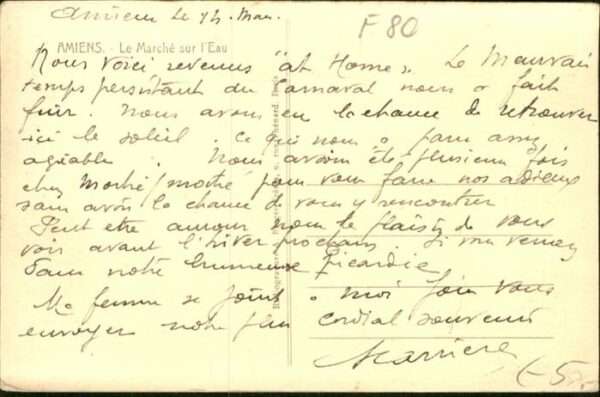 Amiens le 14 Mars
F 80
AMIENS. - Le Marché sur l'Eau
Nous voici revenus "at Home". Le Mauvais
temps persistant du Carnaval nous a fait
fuir. Nous avons eu la chance de retrouver
ici le soleil. Ce qui nous a paru assez
agréable. Nous avions été plusieurs fois
chez pour vous faire nos adieux
sans avoir la chance de vous y rencontrer
Peut etre aurons nous le plaisir de vous
voir avant l'hiver prochain. Si vous venez
dans notre brumeuse Picardie,
Ma femme se joint à moi pour vous
envoyer notre plus cordial souvenir
5.-